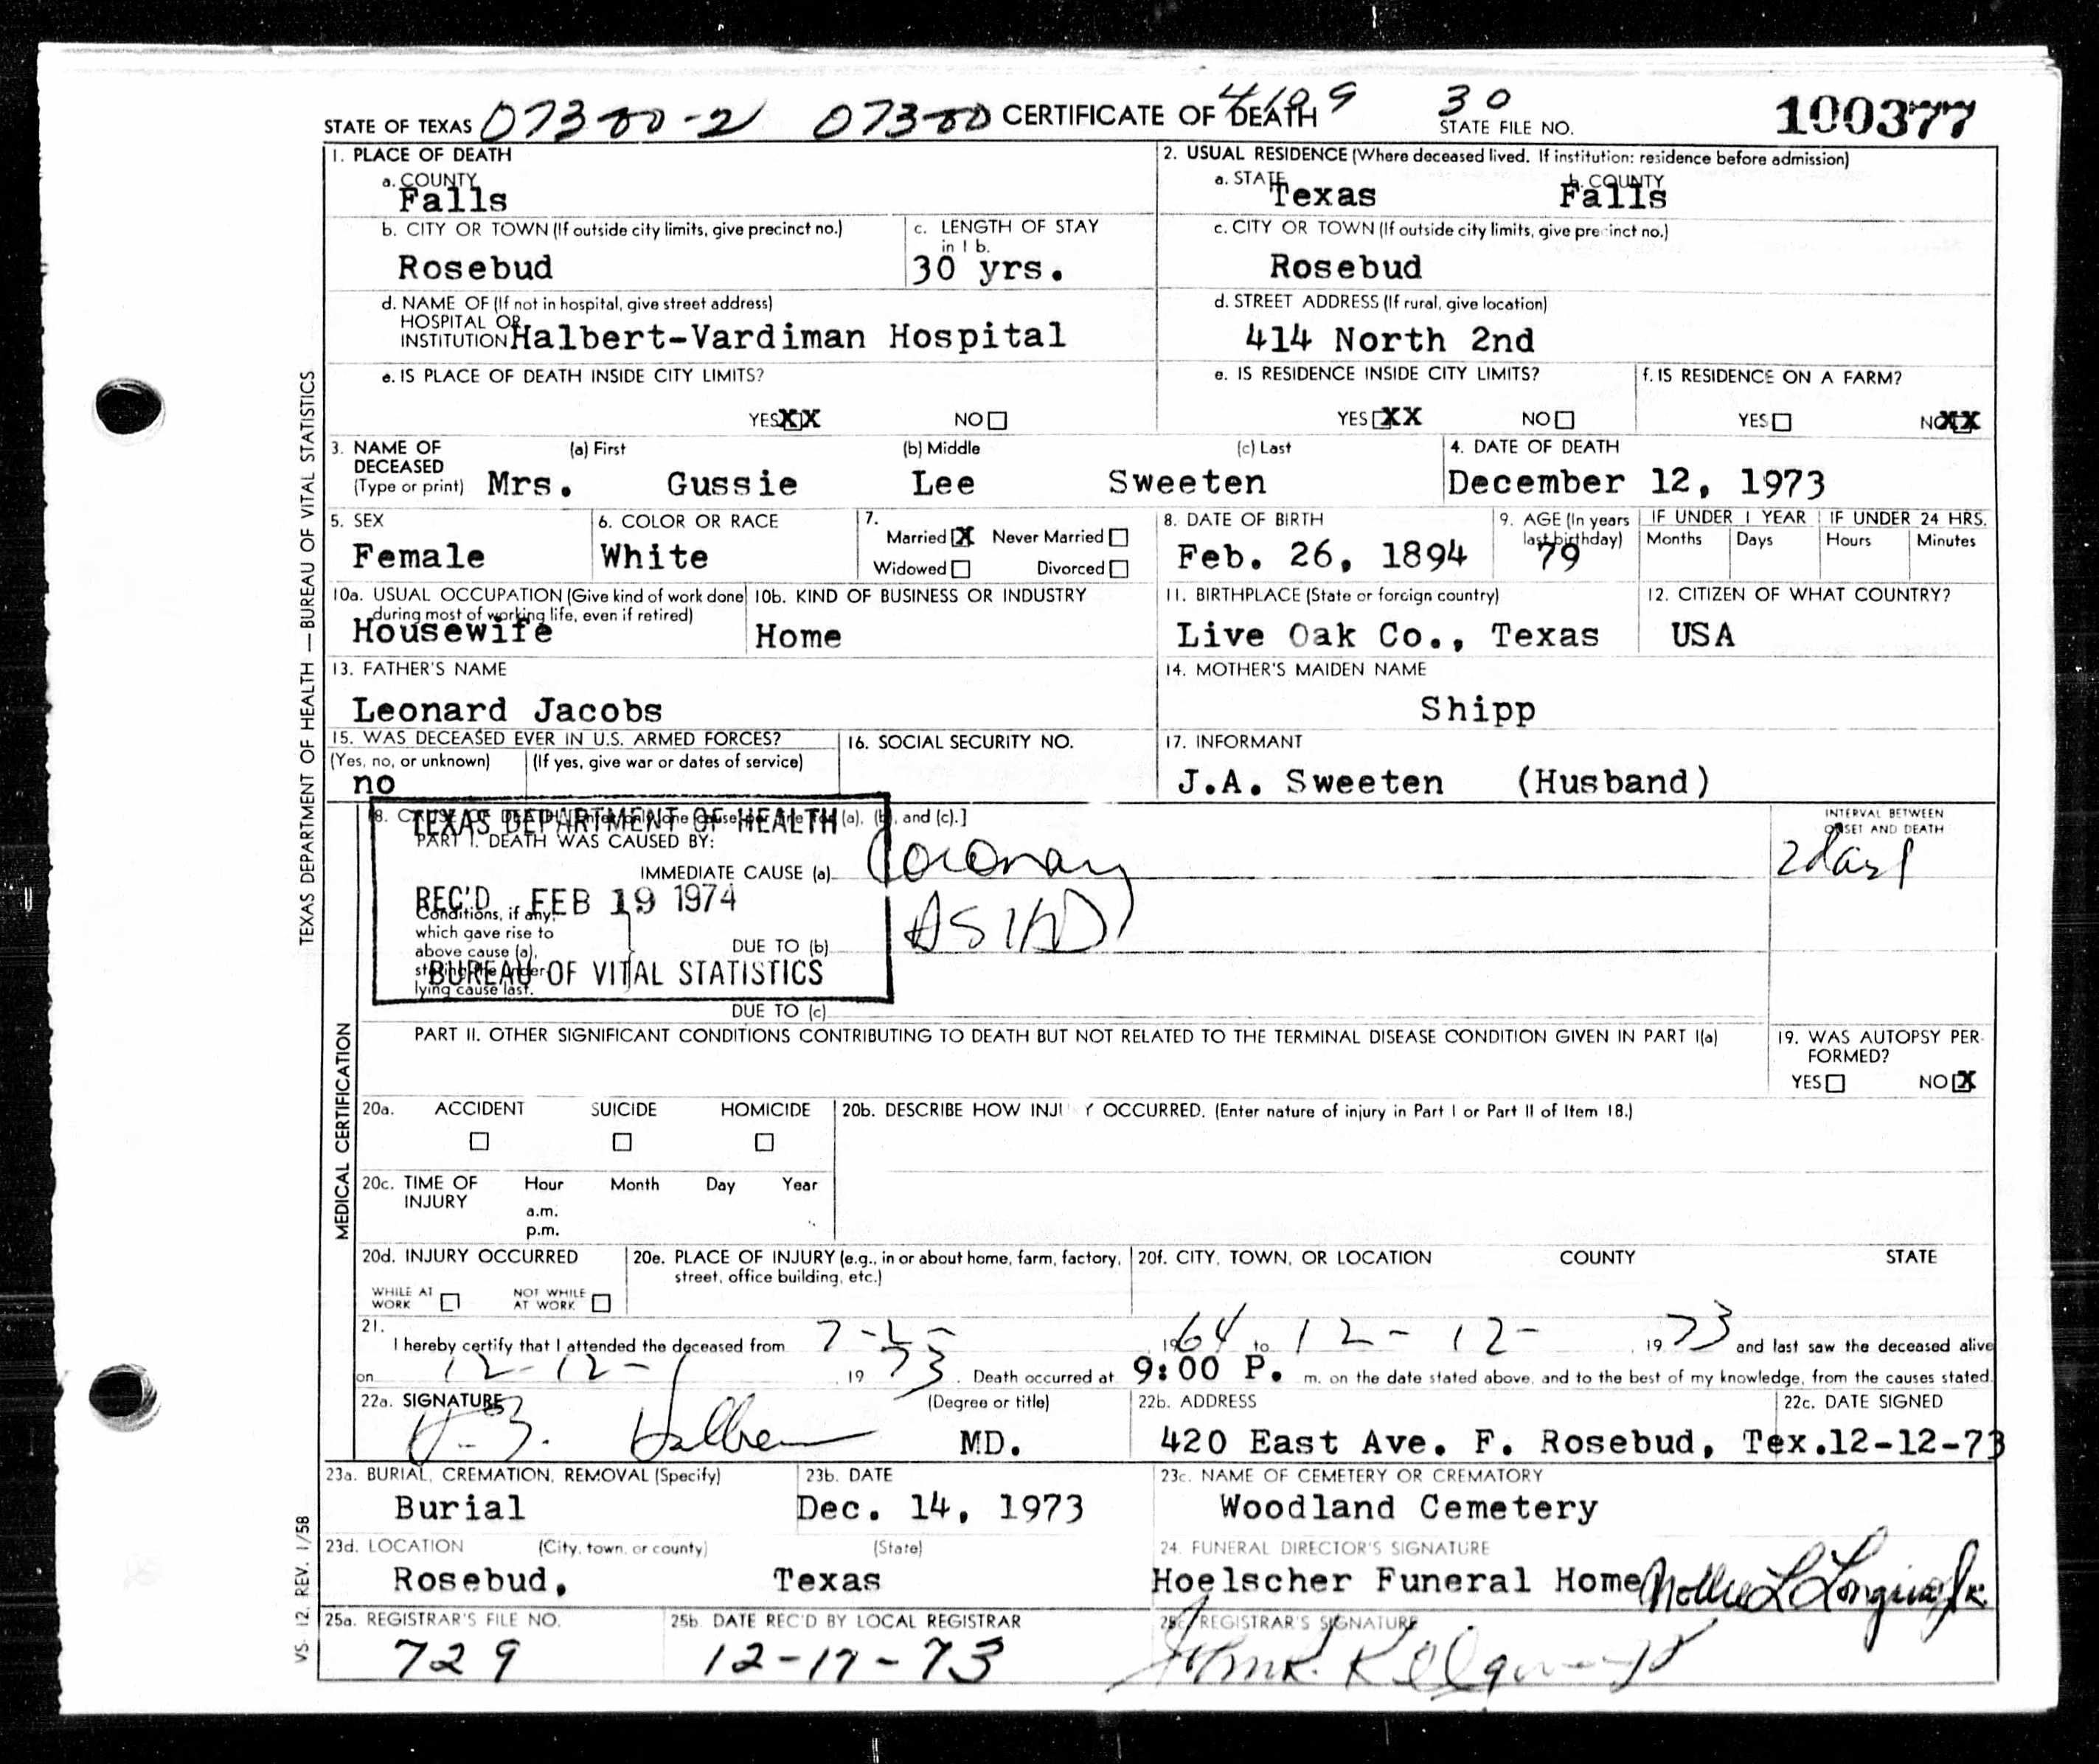 STATE OF TEXAS 07380-2 07380 CERTIFICATE OF DEATH 4109 30 STATE FILE NO. 100377
1. PLACE OF DEATH
a. COUNTY
Falls
2. USUAL RESIDENCE (Where deceased lived. If institution: residence before admission)
a. STATE b. COUNTY
Texas Falls
b. CITY OR TOWN (If outside city limits, give precinct no.)
Rosebud
c. LENGTH OF STAY
in 1 b.
30 yrs.
c. CITY OR TOWN (If outside city limits, give precinct no.)
Rosebud
d. NAME OF (If not in hospital, give street address)
HOSPITAL OR
INSTITUTION Halbert-Vardiman Hospital
d. STREET ADDRESS (If rural, give location)
414 North 2nd
e. IS PLACE OF DEATH INSIDE CITY LIMITS?
YES XX NO
e. IS RESIDENCE INSIDE CITY LIMITS?
YES XX NO
f. IS RESIDENCE ON A FARM?
YES NO XX
3. NAME OF (a) First (b) Middle (c) Last
DECEASED
(Type or print) Mrs. Gussie Lee Sweeten
4. DATE OF DEATH
December 12, 1973
5. SEX
Female
6. COLOR OR RACE
White
7.
Married X Never Married
Widowed Divorced
8. DATE OF BIRTH
Feb. 26, 1894
9. AGE (In years
last birthday)
79
IF UNDER 1 YEAR IF UNDER 24 HRS.
Months Days Hours Minutes
10a. USUAL OCCUPATION (Give kind of work done
during most of working life, even if retired)
Housewife
10b. KIND OF BUSINESS OR INDUSTRY
Home
11. BIRTHPLACE (State or foreign country)
Live Oak Co., Texas
12. CITIZEN OF WHAT COUNTRY?
USA
13. FATHER'S NAME
Leonard Jacobs
14. MOTHER'S MAIDEN NAME
Shipp
15. WAS DECEASED EVER IN U.S. ARMED FORCES?
(Yes, no, or unknown) (If yes, give war or dates of service)
no
16. SOCIAL SECURITY NO.
17. INFORMANT
J.A. Sweeten (Husband)
TEXAS DEPARTMENT OF HEALTH
REC'D FEB 19 1974
BUREAU OF VITAL STATISTICS
18. CAUSE OF DEATH [Enter only one cause per line for (a), (b), and (c).]
PART I. DEATH WAS CAUSED BY:
IMMEDIATE CAUSE (a) Coronary
Conditions, if any,
which gave rise to
above cause (a),
stating the under-
lying cause last.
DUE TO (b) ASHD
DUE TO (c)
INTERVAL BETWEEN
ONSET AND DEATH
2 days
PART II. OTHER SIGNIFICANT CONDITIONS CONTRIBUTING TO DEATH BUT NOT RELATED TO THE TERMINAL DISEASE CONDITION GIVEN IN PART I(a)
19. WAS AUTOPSY PER-
FORMED?
YES NO X
20a. ACCIDENT SUICIDE HOMICIDE
20b. DESCRIBE HOW INJURY OCCURRED. (Enter nature of injury in Part I or Part II of Item 18.)
20c. TIME OF Hour Month Day Year
INJURY
a.m.
p.m.
20d. INJURY OCCURRED
WHILE AT WORK NOT WHILE AT WORK
20e. PLACE OF INJURY (e.g., in or about home, farm, factory,
street, office building, etc.)
20f. CITY, TOWN, OR LOCATION COUNTY STATE
21.
I hereby certify that I attended the deceased from 7- 1964 to 12-12- 1973 and last saw the deceased alive
on 12-12- 1973. Death occurred at 9:00 P. m. on the date stated above, and to the best of my knowledge, from the causes stated.
22a. SIGNATURE (Degree or title)
Halbert MD.
22b. ADDRESS
420 East Ave. F. Rosebud, Tex.
22c. DATE SIGNED
12-12-73
23a. BURIAL, CREMATION, REMOVAL (Specify)
Burial
23b. DATE
Dec. 14, 1973
23c. NAME OF CEMETERY OR CREMATORY
Woodland Cemetery
23d. LOCATION (City, town, or county) (State)
Rosebud, Texas
24. FUNERAL DIRECTOR'S SIGNATURE
Hoelscher Funeral Home
25a. REGISTRAR'S FILE NO.
729
25b. DATE REC'D BY LOCAL REGISTRAR
12-17-73
25c. REGISTRAR'S SIGNATURE
TEXAS DEPARTMENT OF HEALTH — BUREAU OF VITAL STATISTICS
MEDICAL CERTIFICATION
VS. 12 REV. 1/58